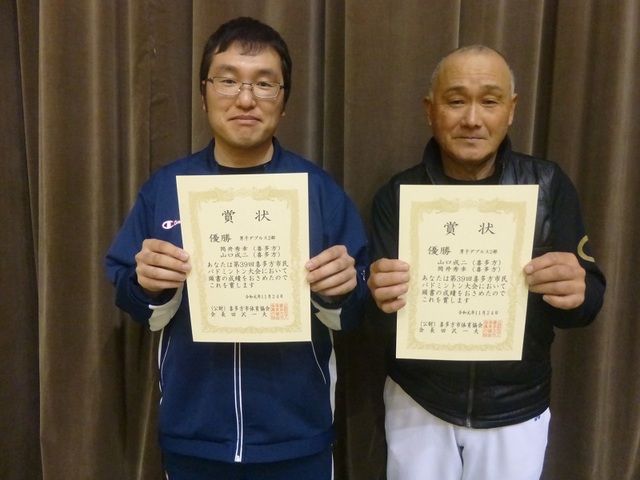 賞状
優勝 男子ダブルス2部
岡井秀幸（喜多方）
山口成二（喜多方）
あなたは第39回喜多方市民
バドミントン大会において
頭書の成績をおさめたので
これを賞します
令和元年11月24日
（公財）喜多方市体育協会
会長 田沢一夫
賞状
優勝 男子ダブルス2部
山口成二（喜多方）
岡井秀幸（喜多方）
あなたは第39回喜多方市民
バドミントン大会において
頭書の成績をおさめたので
これを賞します
令和元年11月24日
（公財）喜多方市体育協会
会長 田沢一夫